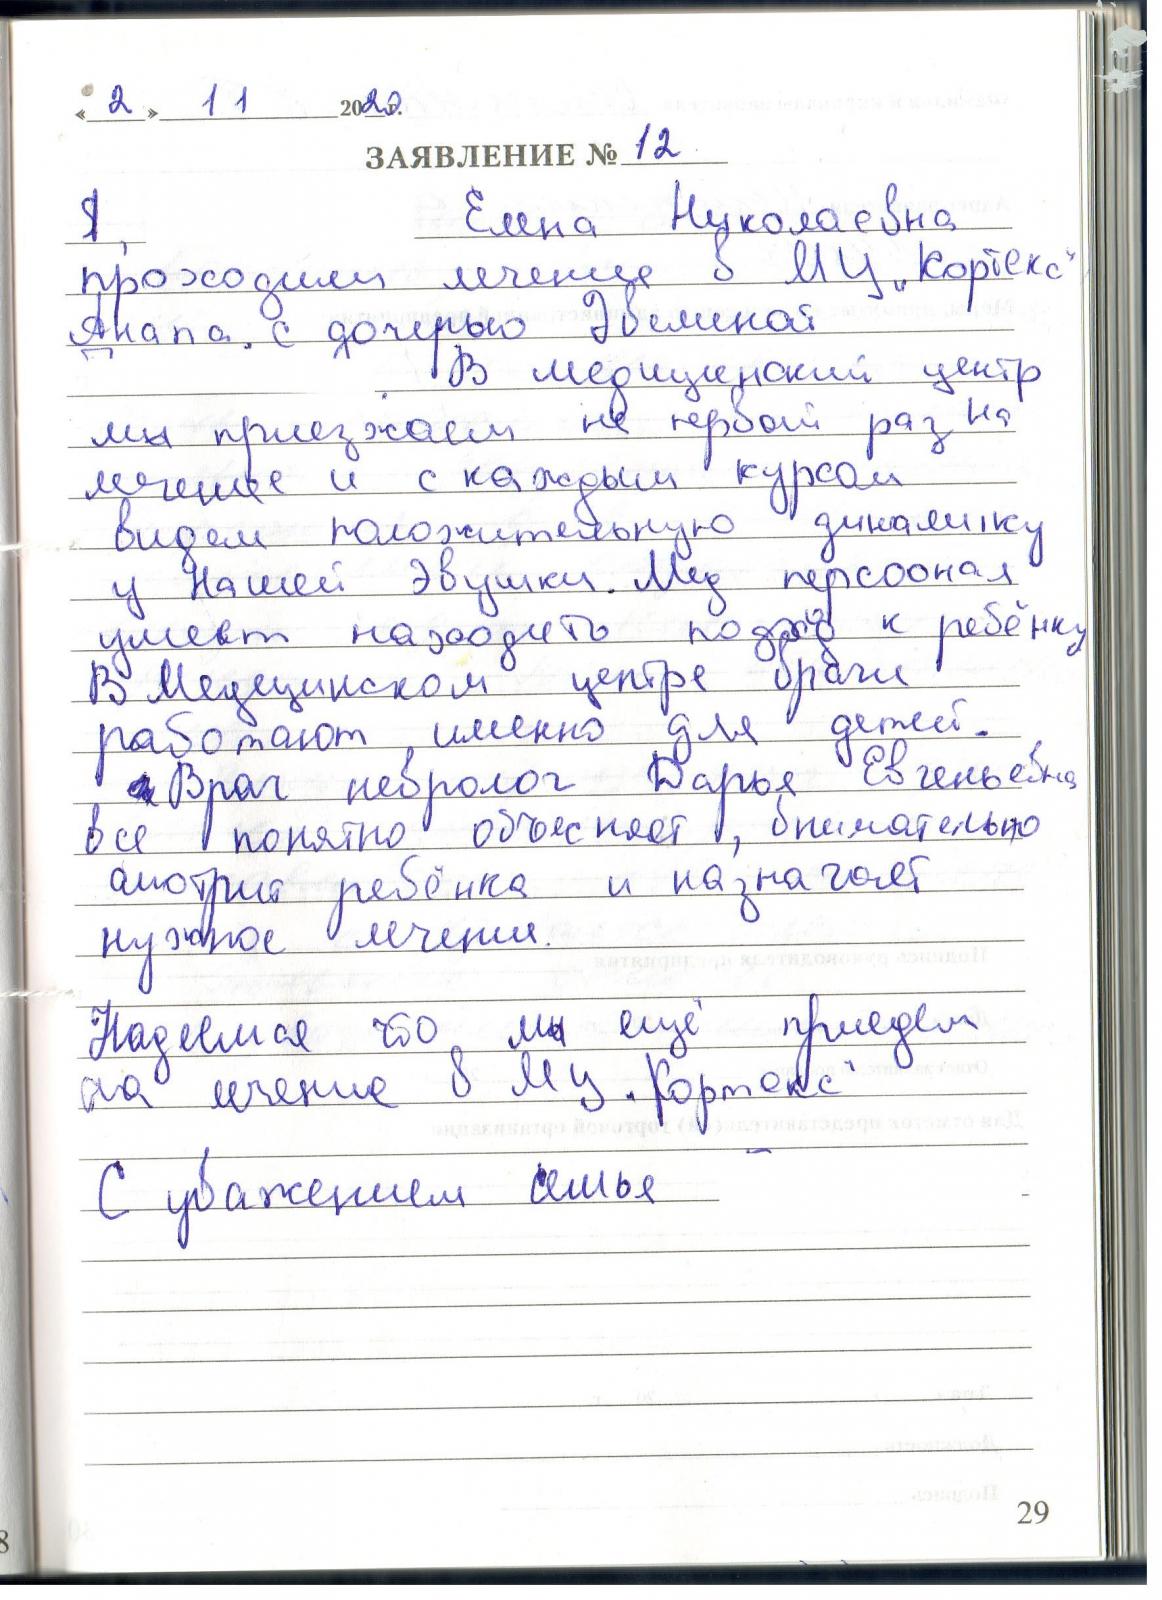 « 2 » 11 2022 г.
ЗАЯВЛЕНИЕ № 12
Я, Елена Николаевна
проходили лечение в МЦ „Кортекс"
Анапа. с дочерью Эвелиной
В медицинский центр
мы приезжаем не первый раз на
лечение и с каждым курсом
видем положительную динамику
у Нашей Эвушки. Мед персоонал
умеет находить подход к ребёнку
В Медецинском центре врачи
работают, именно для детей.
Врач невролог Дарья Евгеньевна
все понятно объесняет, внимательно
смотрит ребёнка и назначает
нужное лечение.
Надеемся что мы ещё приедем
на лечение в МЦ „Кортекс"
С уважением семья
29